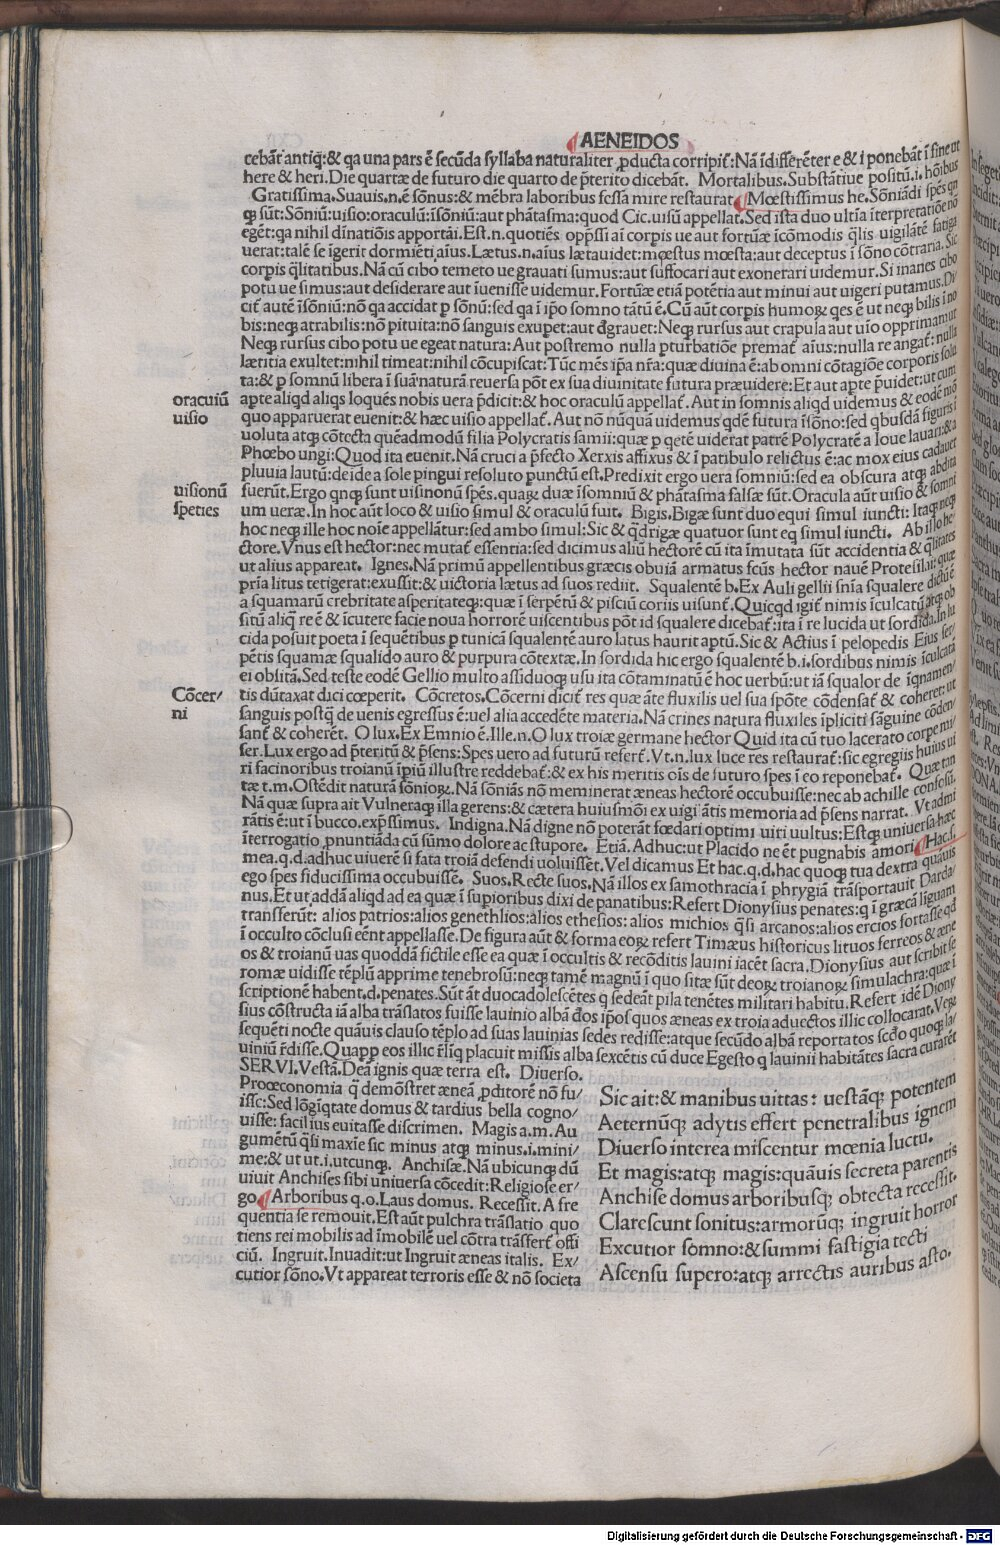 AENEIDOS
cebāt antiq̄:& qa una pars ē secūda syllaba naturaliter ꝓducta corripit̄: Nā īdifferēter e & i ponebāt ī fine ut
here & heri. Die quartæ de futuro die quarto de p̄terito dicebāt. Mortalibus. Substātiue positū .i. hōibus
Gratissima. Suauis .n. ē sōnus: & mēbra laboribus fessa mire restaurat Mœstissimus he. Sōniādi spēs qn
qꝫ sūt: Sōniū: uisio: oraculū: īsōniū: aut phātasma: quod Cic. uisū appellat. Sed ista duo ultīa īterpretatiōe nō
egēt: qa nihil dīnatiōis apportāt. Est .n. quotiēs opp̄ssi aī corpis ue aut fortūæ īcōmodis q̄lis uigilātē fatiga
uerat: talē se īgerit dormiēti aīus. Lætus .n. aīus læta uidet: mœstus mœsta: aut deceptus ī sōno cōtraria. Sic
corpis q̄litatibus. Nā cū cibo temeto ue grauati sumus: aut suffocari aut exonerari uidemur. Si inanes cibo
potu ue simus: aut desiderare aut īuenisse uidemur. Fortūæ etiā potētia aut minui aut uigeri putamus. Di
cit̄ autē īsōniū: nō qa accidat p sōnū: sed qa ī ip̄o somno tātū ē. Cū aūt corpis humoꝝ qes ē ut neqꝫ bilis ī no
bis: neqꝫ atrabilis: nō pituita: nō sanguis exupet: aut dgrauet: Neqꝫ rursus aut crapula aut uīo opprimamur
Neqꝫ rursus cibo potu ue egeat natura: Aut postremo nulla pturbatiōe premat̄ aīus: nulla re angat̄: nulla
lætitia exultet: nihil timeat: nihil cōcupiscat: Tūc mēs ip̄a nr̄a: quæ diuina ē: ab omni cōtagiōe corporis solu
ta: & p somnū libera ī suā naturā reuersa pōt ex sua diuinitate futura præuidere: Et aut apte p̄uidet: ut cum
oraculū
apte aliqd aliqs loquēs nobis uera p̄dicit: & hoc oraculū appellat̄. Aut in somnis aliqd uidemus & eodē mō
uisio
quo apparuerat euenit: & hæc uisio appellat̄. Aut nō nūquā uidemus qdē futura īsōno: sed qbusdā figuris ī
uoluta atqꝫ cōtecta quēadmodū filia Polycratis samii: quæ p qetē uiderat patrē Polycratē a Ioue lauari: & a
Phœbo ungi: Quod ita euenit. Nā cruci a p̄fecto Xerxis affixus & ī patibulo relictus ē: ac mox eius cadauer
pluuia lautū: deīde a sole pingui resoluto punctū est. Predixit ergo uera somniū: sed ea obscura atqꝫ abdita
uisionū
fuerūt. Ergo qnqꝫ sunt uisinonū spēs. quaꝝ duæ īsomniū & phātasma falsæ sūt. Oracula aūt uisio & somni
species
um ueræ. In hoc aūt loco & uisio simul & oraculū fuit. Bigis. Bigæ sunt duo equi simul iuncti: Itaqꝫ neqꝫ
hoc neqꝫ ille hoc noīe appellātur: sed ambo simul: Sic & q̄drigæ quatuor sunt eq simul iuncti. Ab illo he
ctore. Vnus est hector: nec mutat̄ essentia: sed dicimus aliū hectorē cū ita īmutata sūt accidentia & q̄litates
ut alius appareat. Ignes. Nā primū appellentibus græcis obuiā armatus fcūs hector nauē Protesilai: quæ
pr̄ia litus tetigerat: exussit: & uictoria lætus ad suos rediit. Squalentē b. Ex Auli gellii sn̄ia squalere dictū ē
a squamarū crebritate asperitateqꝫ: quæ ī serpētū & pisciū coriis uisunt̄. Quicqd igit̄ nimis īculcatū atqꝫ ob
sitū aliq̄ re ē & īcutere facie noua horrorē uiscentibus pōt id squalere dicebat̄: ita ī re lucida ut sordida. In lu
cida posuit poeta ī sequētibus ꝑ tunicā squalentē auro latus haurit aptū. Sic & Actius ī pelopedis Eius ser
pētis squamæ squalido auro & purpura cōtextæ. In sordida hic ergo squalentē b. i. sordibus nimis īculcatā
ei obsitā. Sed teste eodē Gellio multo assiduoqꝫ usu ita cōtaminatū ē hoc uerbū: ut iā squalor de īqnamen/
Cōcer/
tis dūtaxat dici cœperit. Cōcretos. Cōcerni dicit̄ res quæ āte fluxilis uel sua spōte cōdensat̄ & coheret: ut
ni
sanguis postq̄ de uenis egressus ē: uel alia accedēte materia. Nā crines natura fluxiles īpliciti sāguine cōden/
sant̄ & coherēt. O lux. Ex Emnio ē. Ille .n. O lux troiæ germane hector Quid ita cū tuo lacerato corpe mi/
ser. Lux ergo ad p̄teritū & p̄sens: Spes uero ad futurū refert̄. Vt .n. lux luce res restaurat̄: sic egregiis huius ui
ri facinoribus troianū īpiū illustre reddebat̄: & ex his meritis oīs de futuro spes ī eo reponebat̄. Quæ tan
tæ t.m. Ostēdit naturā sōnioꝝ. Nā sōniās nō meminerat æneas hectorē occubuisse: nec ab achille confessū.
Nā quæ supra ait Vulneraqꝫ illa gerens: & cætera huiusmōi ex uigilātis memoria ad p̄sens narrat. Vt admi
rātis ē: ut ī bucco. exp̄ssimus. Indigna. Nā digne nō poterāt fœdari optimi uiri uultus: Estqꝫ uniuersa hæc
īterrogatio ꝓnuntiāda cū sūmo dolore ac stupore. Etiā. Adhuc: ut Placido ne ēt pugnabis amori Hac. i.
mea. q.d. adhuc uiuerē si fata troiā defendi uoluissēt. Vel dicamus Et hac. q.d. hac quoqꝫ tua dextra quāuis
ego spes fiducissima occubuissē. Suos. Recte suos. Nā illos ex samothracia ī phrygiā trāsportauit Darda/
nus. Et ut addā aliqd ad ea quæ ī supioribus dixi de panatibus: Refert Dionysius penates: q ī græcā liguam
transferūt: alios patrios: alios genethlios: alios ethesios: alios michios q̄si arcanos: alios ercios fortasse qd
ī occulto cōclusi eēnt appellasse. De figura aūt & forma eoꝝ refert Timæus historicus lituos ferreos & æne
os & troianū uas quoddā fictile esse ea quæ ī occultis & recōditis lauini iacēt sacra. Dionysius aut scribit se
romæ uidisse tēplū apprime tenebrosū: neqꝫ tamē magnū ī quo sitæ sūt deoꝝ troianoꝝ simulachra: quæ ī
scriptionē habent .d. penates. Sūt āt duo cadolescētes q sedeāt pila tenētes militari habitu. Refert idē Diony
sius cōstructa iā alba trāslatos fuisse lauinio albā ðos ip̄os quos æneas ex troia aduectos illic collocarat. Veꝝ
sequēti nocte quāuis clauso tēplo ad suas lauinias sedes redisse: atqꝫ secūdo albā reportatos scðo quoqꝫ la/
uiniū r̄disse. Quapp eos illic r̄liq placuit missis alba sexcētis cū duce Egesto q lauinii habitātes sacra curarēt
SERVI. Vestā. Deā ignis quæ terra est. Diuerso.
Proœconomia q̄ demōstret æneā ꝓditorē nō fu/
isse: Sed lōgiqtate domus & tardius bella cogno/
uisse: facilius euitasse discrimen. Magis a.m. Au
gumētū q̄si maxīe sic minus atqꝫ minus .i. mini/
me: & ut ut. i. utcunqꝫ. Anchisæ. Nā ubicunqꝫ dū
uiuit Anchises sibi uniuersa cōcedit: Religiose er/
go Arboribus q.o. Laus domus. Recessit. A fre
quentia se remouit. Est aūt pulchra trāslatio quo
tiens rei mobilis ad īmobilē uel cōtra trāsfert̄ offi
ciū. Ingruit. Inuadit: ut Ingruit æneas italis. Ex/
cutior sōno. Vt appareat terroris esse & nō societa
Sic ait: & manibus uittas: uestāqꝫ potentem
Aeternūqꝫ adytis effert penetralibus ignem
Diuerso interea miscentur mœnia luctu.
Et magis: atqꝫ magis: quāuis secreta parentis
Anchisæ domus arboribusqꝫ obtecta recessit.
Clarescunt sonitus: armorūqꝫ ingruit horror
Excutior somno: & summi fastigia tecti
Ascensu supero: atqꝫ arrectis auribus asto.
Digitalisierung gefördert durch die Deutsche Forschungsgemeinschaft - DFG